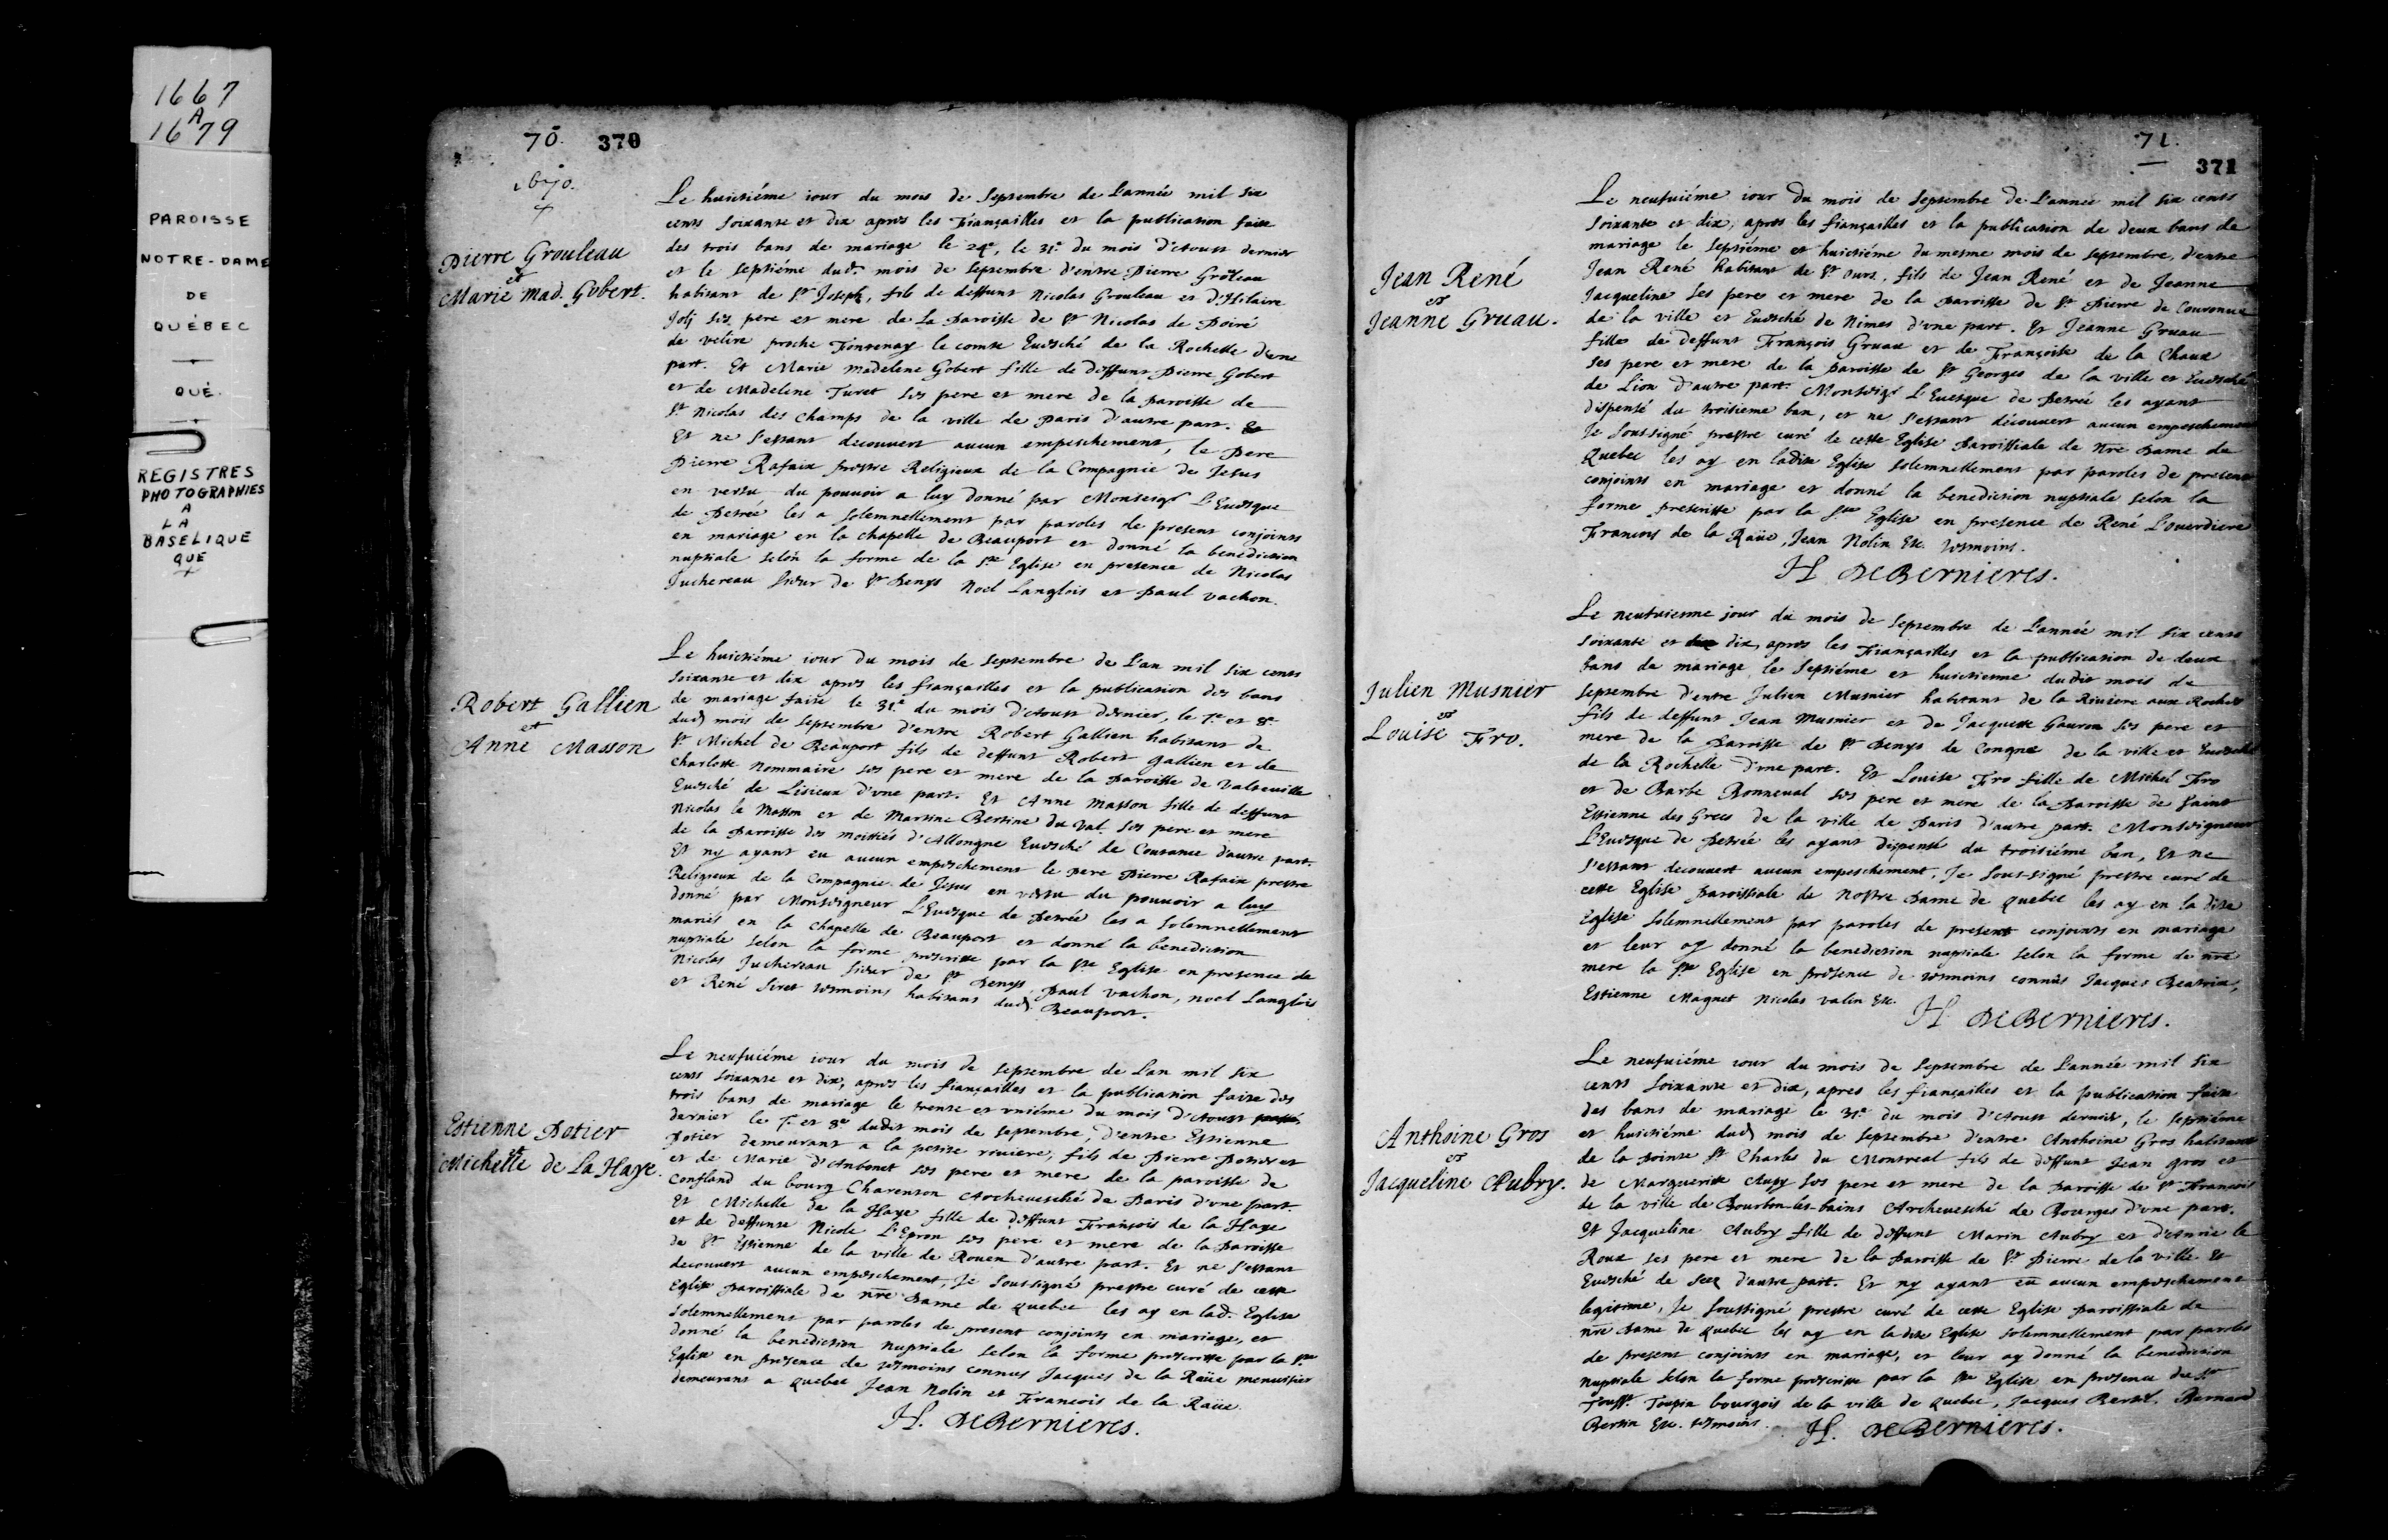 1667
A
1679
PAROISSE
NOTRE-DAME
DE
QUÉBEC
QUÉ.
REGISTRES
PHOTOGRAPHIES
A
LA
BASELIQUE
QUE
70. 370
1670.
Pierre Grouleau
et
Marie Mad. Gobert.
Le huictiéme iour du mois de Septembre de L'année mil six
cents soixante et dix apres les Fiançailles et la publication faite
des trois bans de mariage le 24e, le 31e du mois d'Aoust dernier
et le septiéme dud. mois de Septembre d'entre Pierre Groleau
habitant de St Joseph, fils de deffunt Nicolas Grouleau et d'Hilaire
Jolj ses pere et mere de La Paroisse de St Nicolas de Poiré
de velire proche Fontenay le comte Euesché de la Rochelle d'vne
part. Et Marie Madelene Gobert fille de deffunt Pierre Gobert
et de Madelene Turet ses pere et mere de la paroisse de
St Nicolas des Champs de la ville de Paris d'autre part. Et
Et ne s'estant decouuert aucun empeschement, le Pere
Pierre Rafaix prestre Religieux de la Compagnie de Jesus
en vertu du pouuoir a luy donné par Monseigr L'Euesque
de Petrée les a solemnellement par paroles de present conjoints
en mariage en la chapelle de Beauport et donné la benediction
nuptiale selon la forme de la Ste Eglise en presence de Nicolas
Juchereau Sieur de St Denys Noel Langlois et Paul vachon.
Robert Gallien
et
Anne Masson
Le huictiéme iour du mois de Septembre de L'an mil six cents
soixante et dix apres les fiançailles et la publication des bans
de mariage faite le 31.e du mois d'Aoust dernier, le 7.e et 8e
dud. mois de Septembre d'entre Robert Gallien habitant de
St Michel de Beauport fils de deffunt Robert Gallien et de
Charlotte Nommaire ses pere et mere de la Paroisse de Valseuille
Euesché de Lisieux d'vne part. Et Anne Masson fille de deffunt
Nicolas le Masson et de Martine Bertine du Val ses pere et mere
de la Paroisse des moittiés d'Allongne Euesché de Coutance d'autre part.
Et ny ayant eu aucun empeschement le pere Pierre Rafaix prestre
Religieux de la Compagnie de Jesus en vertu du pouuoir a luy
donné par Monseigneur L'Euesque de Petrée les a solemnellement
mariés en la Chapelle de Beauport et donné la benediction
nuptiale selon la forme prescritte par la Ste Eglise en presence de
Nicolas Juchereau Sieur de St Denys, Paul vachon, noel Langlois
et René Siret tesmoins habitans dud. Beauport.
Estienne Potier
et
Michelle de La Haye.
Le neufuiéme iour du mois de Septembre de Lan mil six
cents soixante et dix, apres les fiançailles et la publication faite des
trois bans de mariage le trente et vniéme du mois d'Aoust
dernier le 7.e et 8e dudit mois de Septembre, d'entre Estienne
Potier demeurant a la petite riuiere, fils de Pierre Potier et
et de Marie d'Anbonet ses pere et mere de la paroisse de
Confland du bourg Charenton Archeuesché de Paris d'vne part
Et Michelle de la Haye fille de deffunt François de la Haye
et de deffunte Nicole L'Epron ses pere et mere de la Paroisse
de St Estienne de la ville de Rouen d'autre part. Et ne s'estant
decouuert aucun empeschement, Je soussigné prestre curé de cette
Eglise paroissiale de nre Dame de Quebec les ay en lad. Eglise
solemnellement par paroles de present conjoints en mariage, et
donné la benediction nuptiale selon la forme prescritte par la Ste
Eglise en presence de tesmoins connus Jacques de la Raüe menuisier
demeurant a Quebec Jean Nolin et Francois de la Raüe.
H. DeBernieres.
71.
371
Jean René
et
Jeanne Gruau.
Le neufuiéme iour du mois de Septembre de L'année mil six cents
soixante et dix, apres les fiançailles et la publication de deux bans de
mariage le septiéme et huictiéme du mesme mois de Septembre, d'entre
Jean René habitant de St Ours, fils de Jean René et de Jeanne
Jacqueline ses pere et mere de la Paroisse de St Pierre de Couronne
de la ville et Euesché de Nimes d'vne part. Et Jeanne Gruau
fille de deffunt François Gruau et de Françoise de la Chaux
ses pere et mere de la paroisse de St Georges de la ville et Euesché
de Lion d'autre part. Monseigr L'Euesque de Petrée les ayant
dispensé du troisieme ban, et ne s'estant découuert aucun empeschement
Je soussigné prestre curé de cette Eglise Paroissiale de nre Dame de
Quebec les ay en ladite Eglise solemnellement par paroles de present
conjoints en mariage et donné la benediction nuptiale selon la
forme prescritte par la Ste Eglise en presence de René L'ouerdiere
Francois de la Raüe, Jean Nolin Etc. tesmoins.
H DeBernieres.
Julien Musnier
et
Louise Fro.
Le neufuiesme jour du mois de Septembre de L'année mil six cents
soixante et dix, apres les Fiançailles et la publication de deux
bans de mariage le septiéme et huictiesme dudit mois de
Septembre d'entre Julien Musnier habitant de la Riuiere aux Rochers
fils de deffunt Jean Musnier et de Jacquette Gauron ses pere et
mere de la Paroisse de St Denys de Congne de la ville et Euesché
de la Rochelle d'vne part. Et Louise Fro fille de Michel Fro
et de Barbe Bonneual ses pere et mere de la Paroisse de Saint
Estienne des Grecs de la ville de Paris d'autre part. Monseigneur
L'Euesque de Petrée les ayant dispensé du troisiéme ban, Et ne
s'estant decouuert aucun empeschement, Je sous-signé prestre curé de
cette Eglise Paroissiale de Nostre Dame de Quebec les ay en la dite
Eglise solemnellement par paroles de present conjoints en mariage
et leur ay donné la benediction nuptiale selon la forme de nre
mere la Ste Eglise en presence de tesmoins connûs Jacques Beatrix,
Estienne Magnet Nicolas valin Etc.
H DeBernieres.
Anthoine Gros
et
Jacqueline Aubry.
Le neufuiéme iour du mois de Septembre de L'année mil six
cents soixante et dix, apres les fiançailles et la publication faite
des bans de mariage le 31.e du mois d'Aoust dernier, le septiéme
et huictiéme dud. mois de Septembre d'entre Anthoine Gros habitant
de la Pointe St Charles du Montreal fils de deffunt Jean gros et
de Marguerite Aupy ses pere et mere de la Paroisse de St Francois
de la ville de Bourbon-les-bains Archeuesché de Bourges d'vne part.
Et Jacqueline Aubry fille de deffunt Marin Aubry et d'Anne le
Roux ses pere et mere de la Paroisse de St Pierre de la ville et
Euesché de Seez d'autre part. Et ny ayant eu aucun empeschement
legitime, Je soussigné prestre curé de cette Eglise paroissiale de
nre Dame de Quebec les ay en ladite Eglise solemnellement par paroles
de present conjoints en mariage, et leur ay donné la benediction
nuptiale selon la forme prescritte par la Ste Eglise en presence du Sr
Tousst. Toupin bourgois de la ville de Quebec, Jacques Bernard
Bertin Etc. tesmoins.
H. DeBernieres.